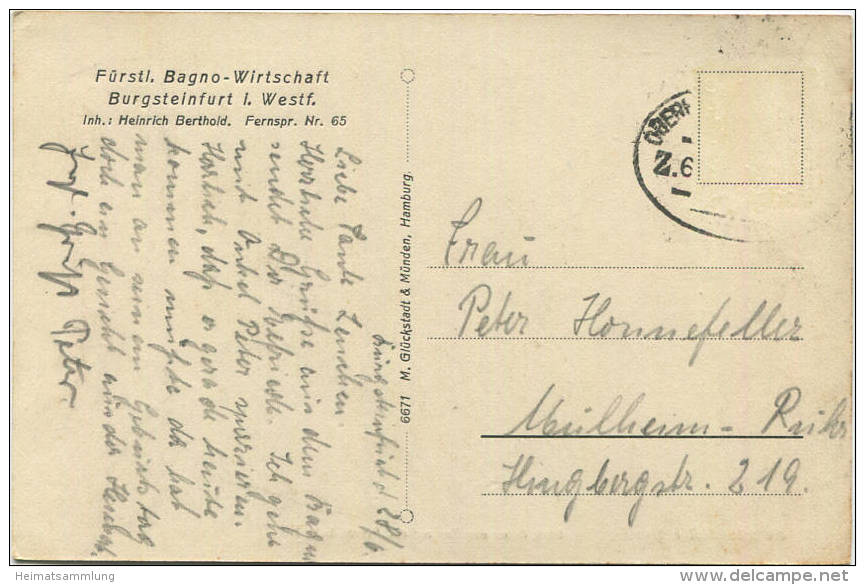 Fürstl. Bagno-Wirtschaft
Burgsteinfurt i. Westf.
Inh.: Heinrich Berthold. Fernspr. Nr. 65
Burgsteinfurt d 28/6.
Liebe Tante Lenchen.
Herzliche Grüße aus dem Bagno
sendet Dir Ich gehe
mit Onkel Peter spazieren.
daß er gerade heute
kommen mußte da hat
man an seinem Geburtstag
doch ein Gesicht aus der
Gruß Peter.
6671 M. Glückstadt & Münden, Hamburg.
OBER
Z.6
Frau
Peter Honnefeller
Mülheim-Ruhr
Hingbergstr. 219.
Heimatsammlung
delcampe.net